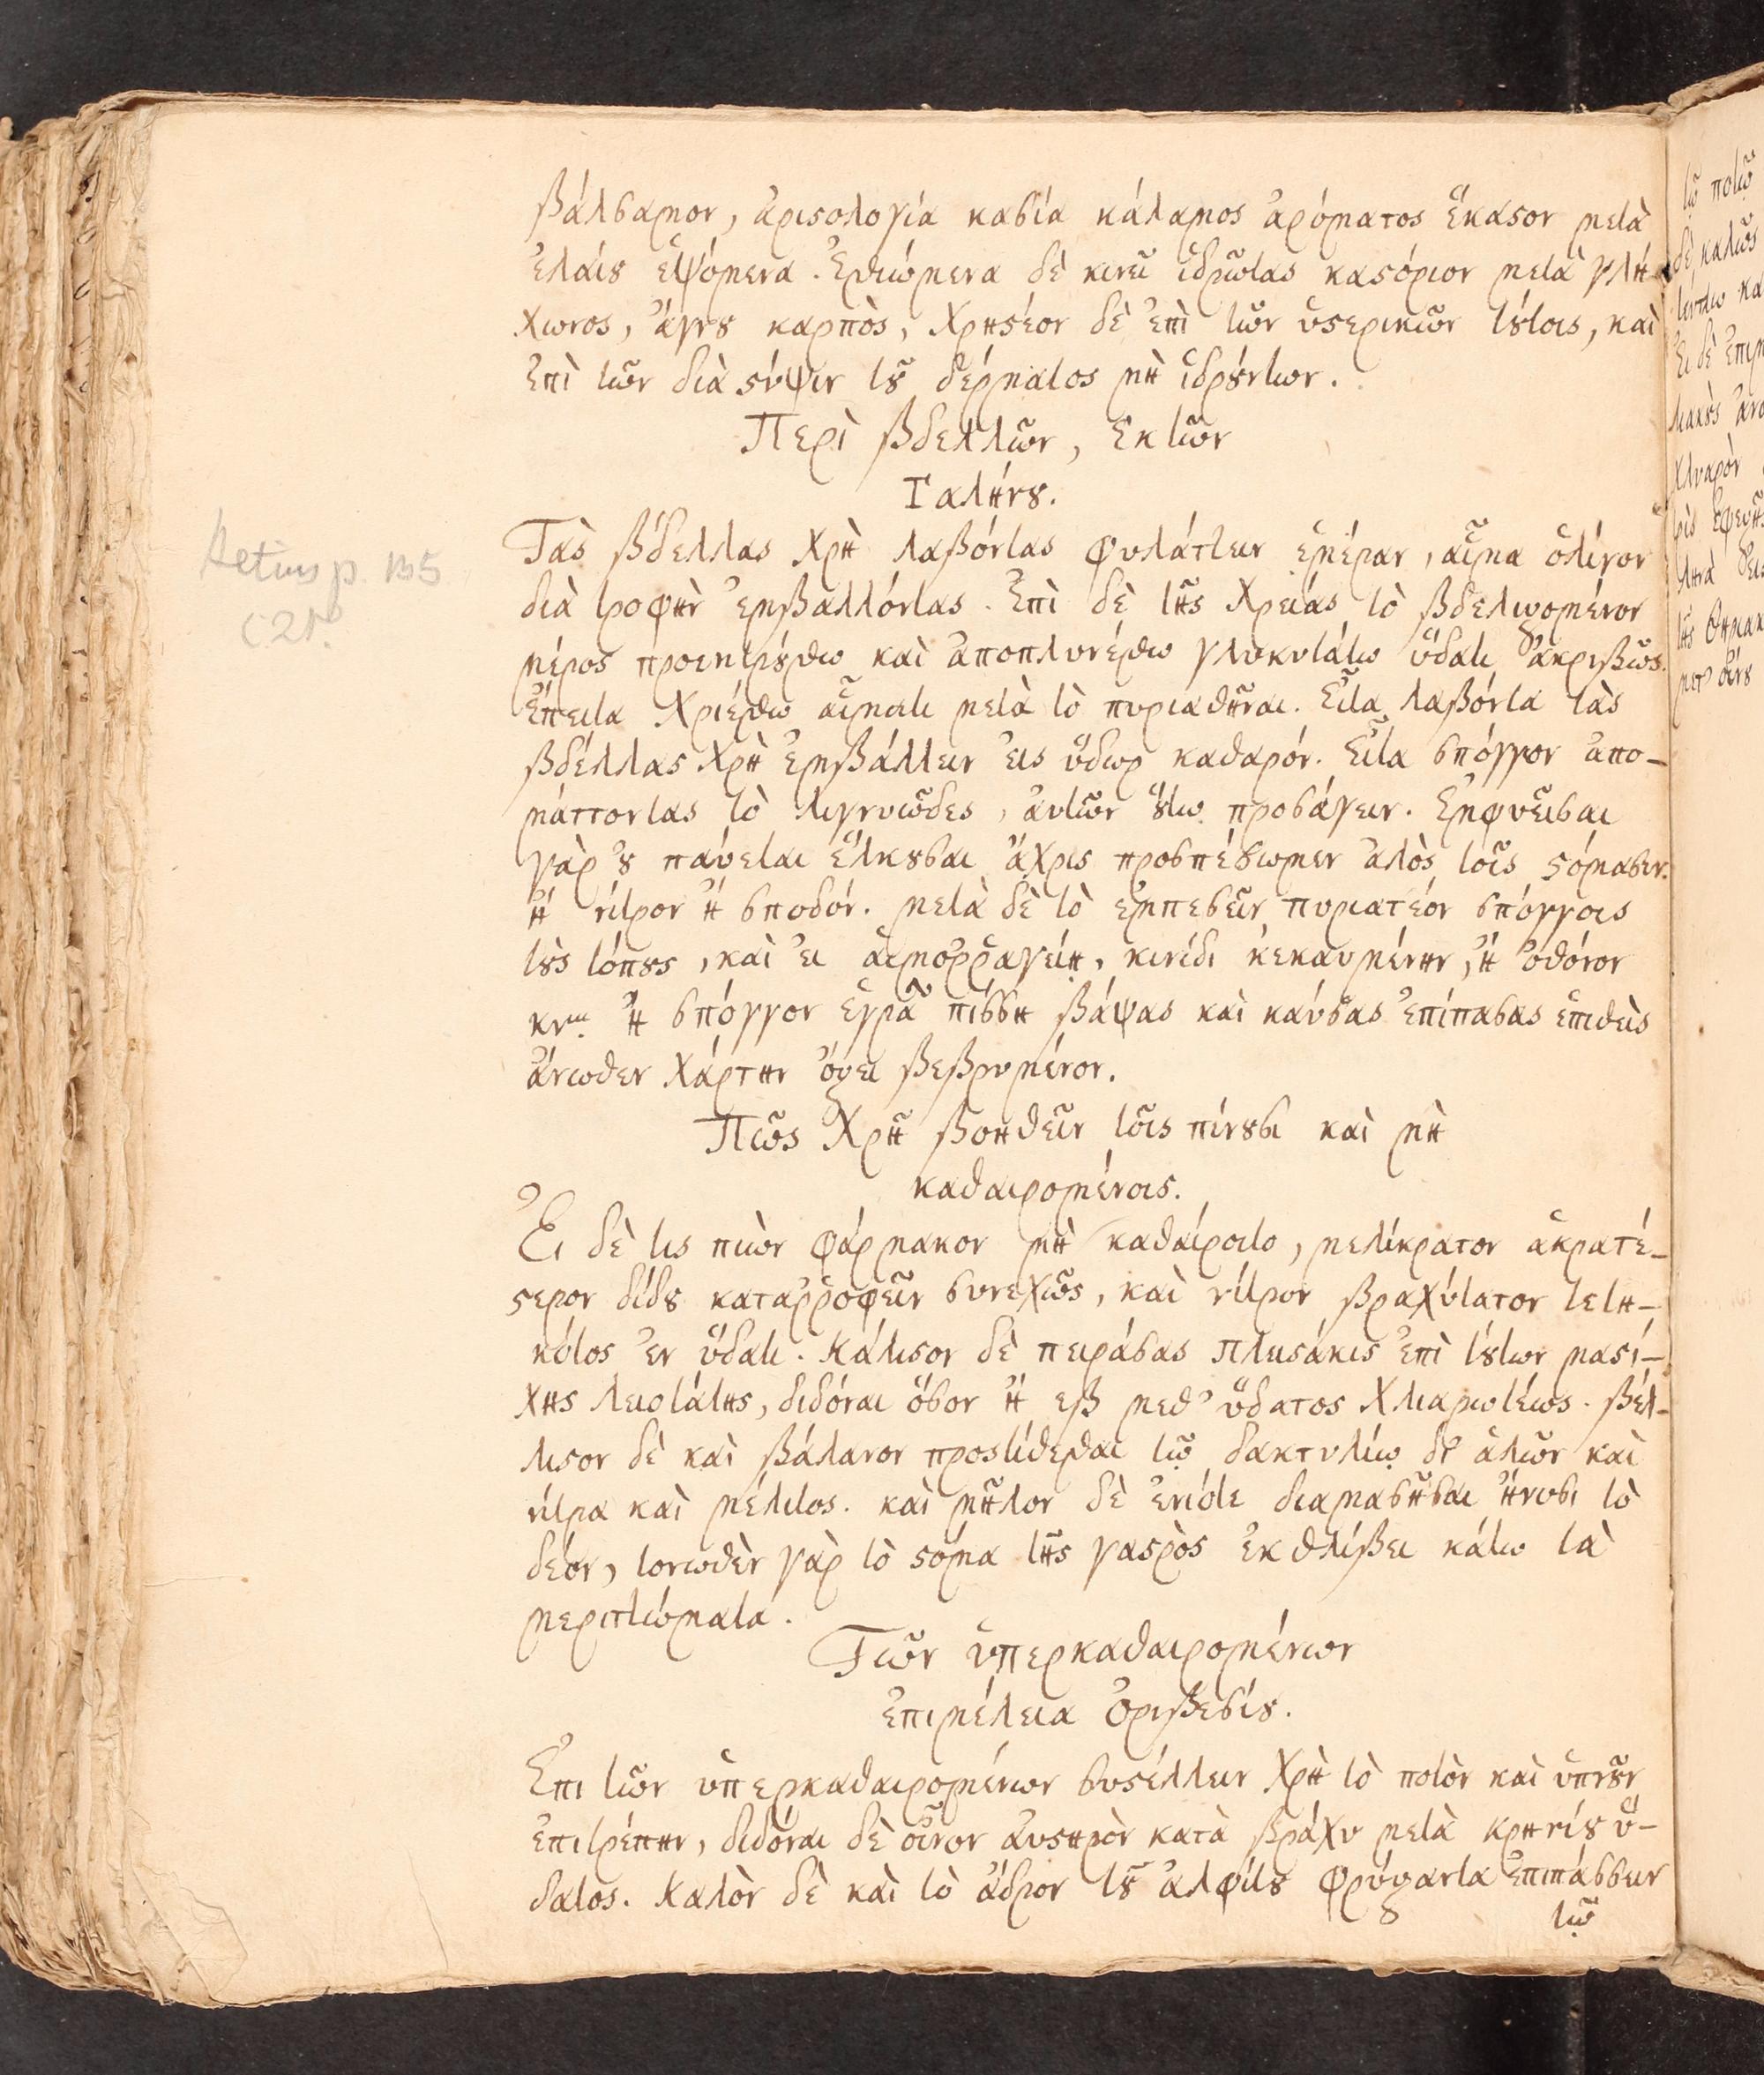 βάλσαμον, ἀριστολογία κασία κάλαμος ἀρόματος ἕκαστον μετὰ
ἐλαίου ἑψόμενα. Ἐσθιώμενα δὲ κινεῖ ἱδρῶτας καστόριον μετὰ γλή
χωνος, ἄγνου καρπὸς, Χρηστέον δὲ ἐπὶ τῶν ὑστερικῶν τούτοις, καὶ
ἐπὶ τῶν διὰ στύψιν τοῦ δέρματος μὴ ἱδρούντων.
Περὶ βδελλῶν, Ἐκ τῶν
Γαλήνου.
Τὰς βδέλλας χρὴ λαβόντας φυλάττειν ἡμέραν, αἷμα ὀλίγον
διὰ τροφὴν ἐμβαλλόντας. Ἐπὶ δὲ τῆς χρείας τὸ βδελιζομένον
μέρος προενιτρούσθω καὶ ἀποπλυνέσθω γλυκυτάτω ὕδατι ἀκριβῶς.
Ἔπειτα χριέσθω αἵματι μετὰ τὸ πυριαθῆναι. Εἶτα λαβόντα τὰς
βδέλλας χρὴ ἐμβάλλειν εἰς ὕδωρ καθαρόν. Εἶτα σπόγγον ἀπο-
μάττοντας τὸ λιγνυῶδες, αὐτῶν οὕτω προσάγειν. Ἐμφυεῖσαι
γὰρ οὐ παύεται ἕλκουσαι ἄχρις προσπέσωμεν ἁλὸς τοῖς στόμασιν.
ἢ νίτρον ἢ σποδόν. μετὰ δὲ τὸ ἐμπεσεῖν πυριατέον σπόγγοις
τοὺς τόπους, καὶ εἰ αἱμορραγείη, κινίδι κεκαυμένην, ἢ ὀθόνον
κνμ. ἢ σπόγγον ὑγρᾶ πίσση βάψας καὶ καύσας ἐπίπασας ἐπιθεὶς
ἄνωθεν χάρτην ὄξει βεβρυμένον.
Πῶς χρῆ βοηθεῖν τοῖς πίνουσι καὶ μὴ
καθαιρομένοις.
Εἰ δὲ τις πιὼν φάρμακον μὴ καθαίροιτο, μελίκρατον ἀκρατέ-
στερον δίδου καταρροφεῖν συνεχῶς, καὶ νίτρον βραχύτατον τετη-
κότος ἐν ὕδατι. Κάλιστον δὲ πειράσας πλειστάκις ἐπὶ τούτων μαστί-
χης λειοτάτης, διδόναι ὅσον ἢ εβ μεθ᾽ ὕδατος χλιαρωτέως. βέλ-
λιστον δὲ καὶ βάλανον προστίθεσθαι τῷ δακτυλίῳ δι᾽ ἁλῶν καὶ
νίτρα καὶ μέλιτος. καὶ μῆλον δὲ ἐνίοτε διαμασῆσαι ἤνυσι τὸ
δέον, τονωθὲν γὰρ τὸ στόμα τῆς γαστρὸς ἐκθλίβει κάτω τὰ
περιττώματα.
Τῶν ὑπερκαθαιρομένων
ἐπιμέλεια Ὀριβεσίου.
Ἐπι τῶν ὑπερκαθαιρομένων συστέλλειν χρὴ τὸ ποτὸν καὶ ὑπνοῦν
ἐπιτρέπην, διδόναι δὲ οἶνον αὐστηρὸν κατὰ βράχυ μετὰ κρηνίου ὕ-
δατος. Καλὸν δὲ καὶ τὸ ἄδρον τοῦ ἀλφίτου φρύξαντα ἐπιπάσσειν
τῷ
Aetius p. 135